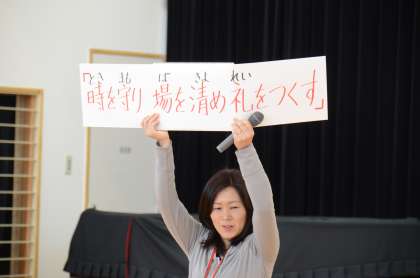 とき まも ば きよ れい
「時を守り 場を清め 礼をつくす」